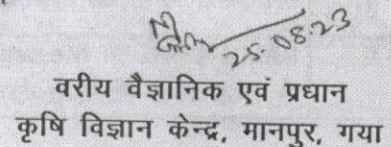 25.08.23
वरीय वैज्ञानिक एवं प्रधान
कृषि विज्ञान केन्द्र, मानपुर, गया